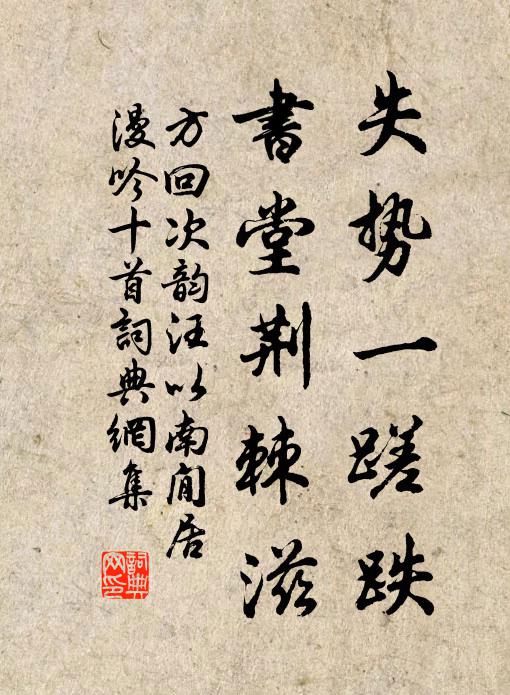 失势一蹉跌
書堂荆棘滋
方回次韵汪以南闲居
漫吟十首詞典網集
詞典網印